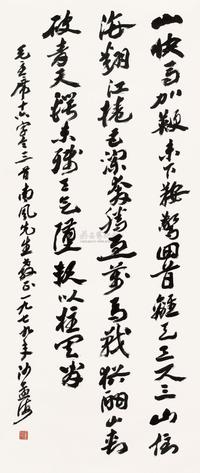 山快馬加鞭未下鞍驚回首離天三尺三山倒
海翻江捲巨瀾奔騰急萬馬戰猶酣山刺
破青天鍔未殘天欲墮賴以拄其間
毛主席十六字令三首南風先生教正一九七九年沙孟海